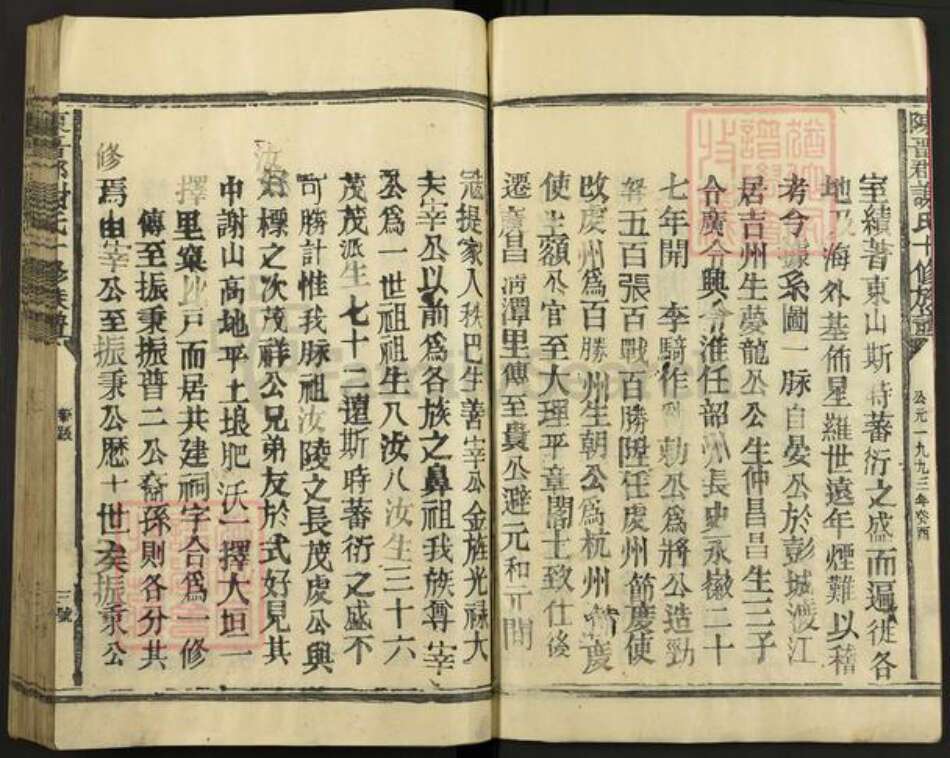 陳晋郡謝氏十修族譜
公元一九九三年癸酉
室績著東山斯時蕃衍之盛而遍徙各
地及海外基佈星羅世遠年煙難以稽
考今據系圖一脉自晏公於彭城渡江
居吉州生夢龍公公生仲昌昌生三子
令廣令興令淮任韶州長史永徽二十
七年開 李騎作 勅公爲將公造勁
弩五百張百戰百勝陞任慶州節慶使
改慶州爲百勝州生朝公爲杭州 度
使生額公官至大理平章閣士致仕後
遷廣昌 潭里傳至貴公避元和元間
冦提家入秩巴生善宰公金旌光禄大
夫宰公以前爲各族之鼻祖我族尊宰
公爲一世祖祖生八汝八汝生三十六
茂茂派生七十二還斯時蕃衍之盛不
可勝計惟我脉祖汝陵之長茂慶公與
汝好標之次茂祥公兄弟友於式好見其
中謝山高地平土埌肥沃一擇大坦一
擇里 比戸而居共建祠宇合爲一修
傳至振秉振普二公裔孫則各分共
修焉由宰公至振秉公歷十世矣振秉公
三號